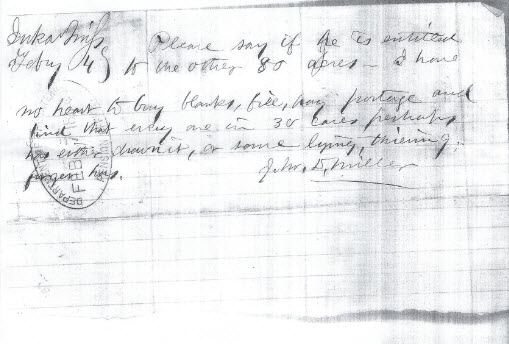 Iuka Miss Please say if he is entitled
Febry 4 to the other 80 acres - I have
no heart to buy blanks, fill, pay postage and
find that every one in 30 cases perhaps
has either drawn it, or some lying, thieving
has.
Jno. D. Miller
DEPART
FEB
PENSION